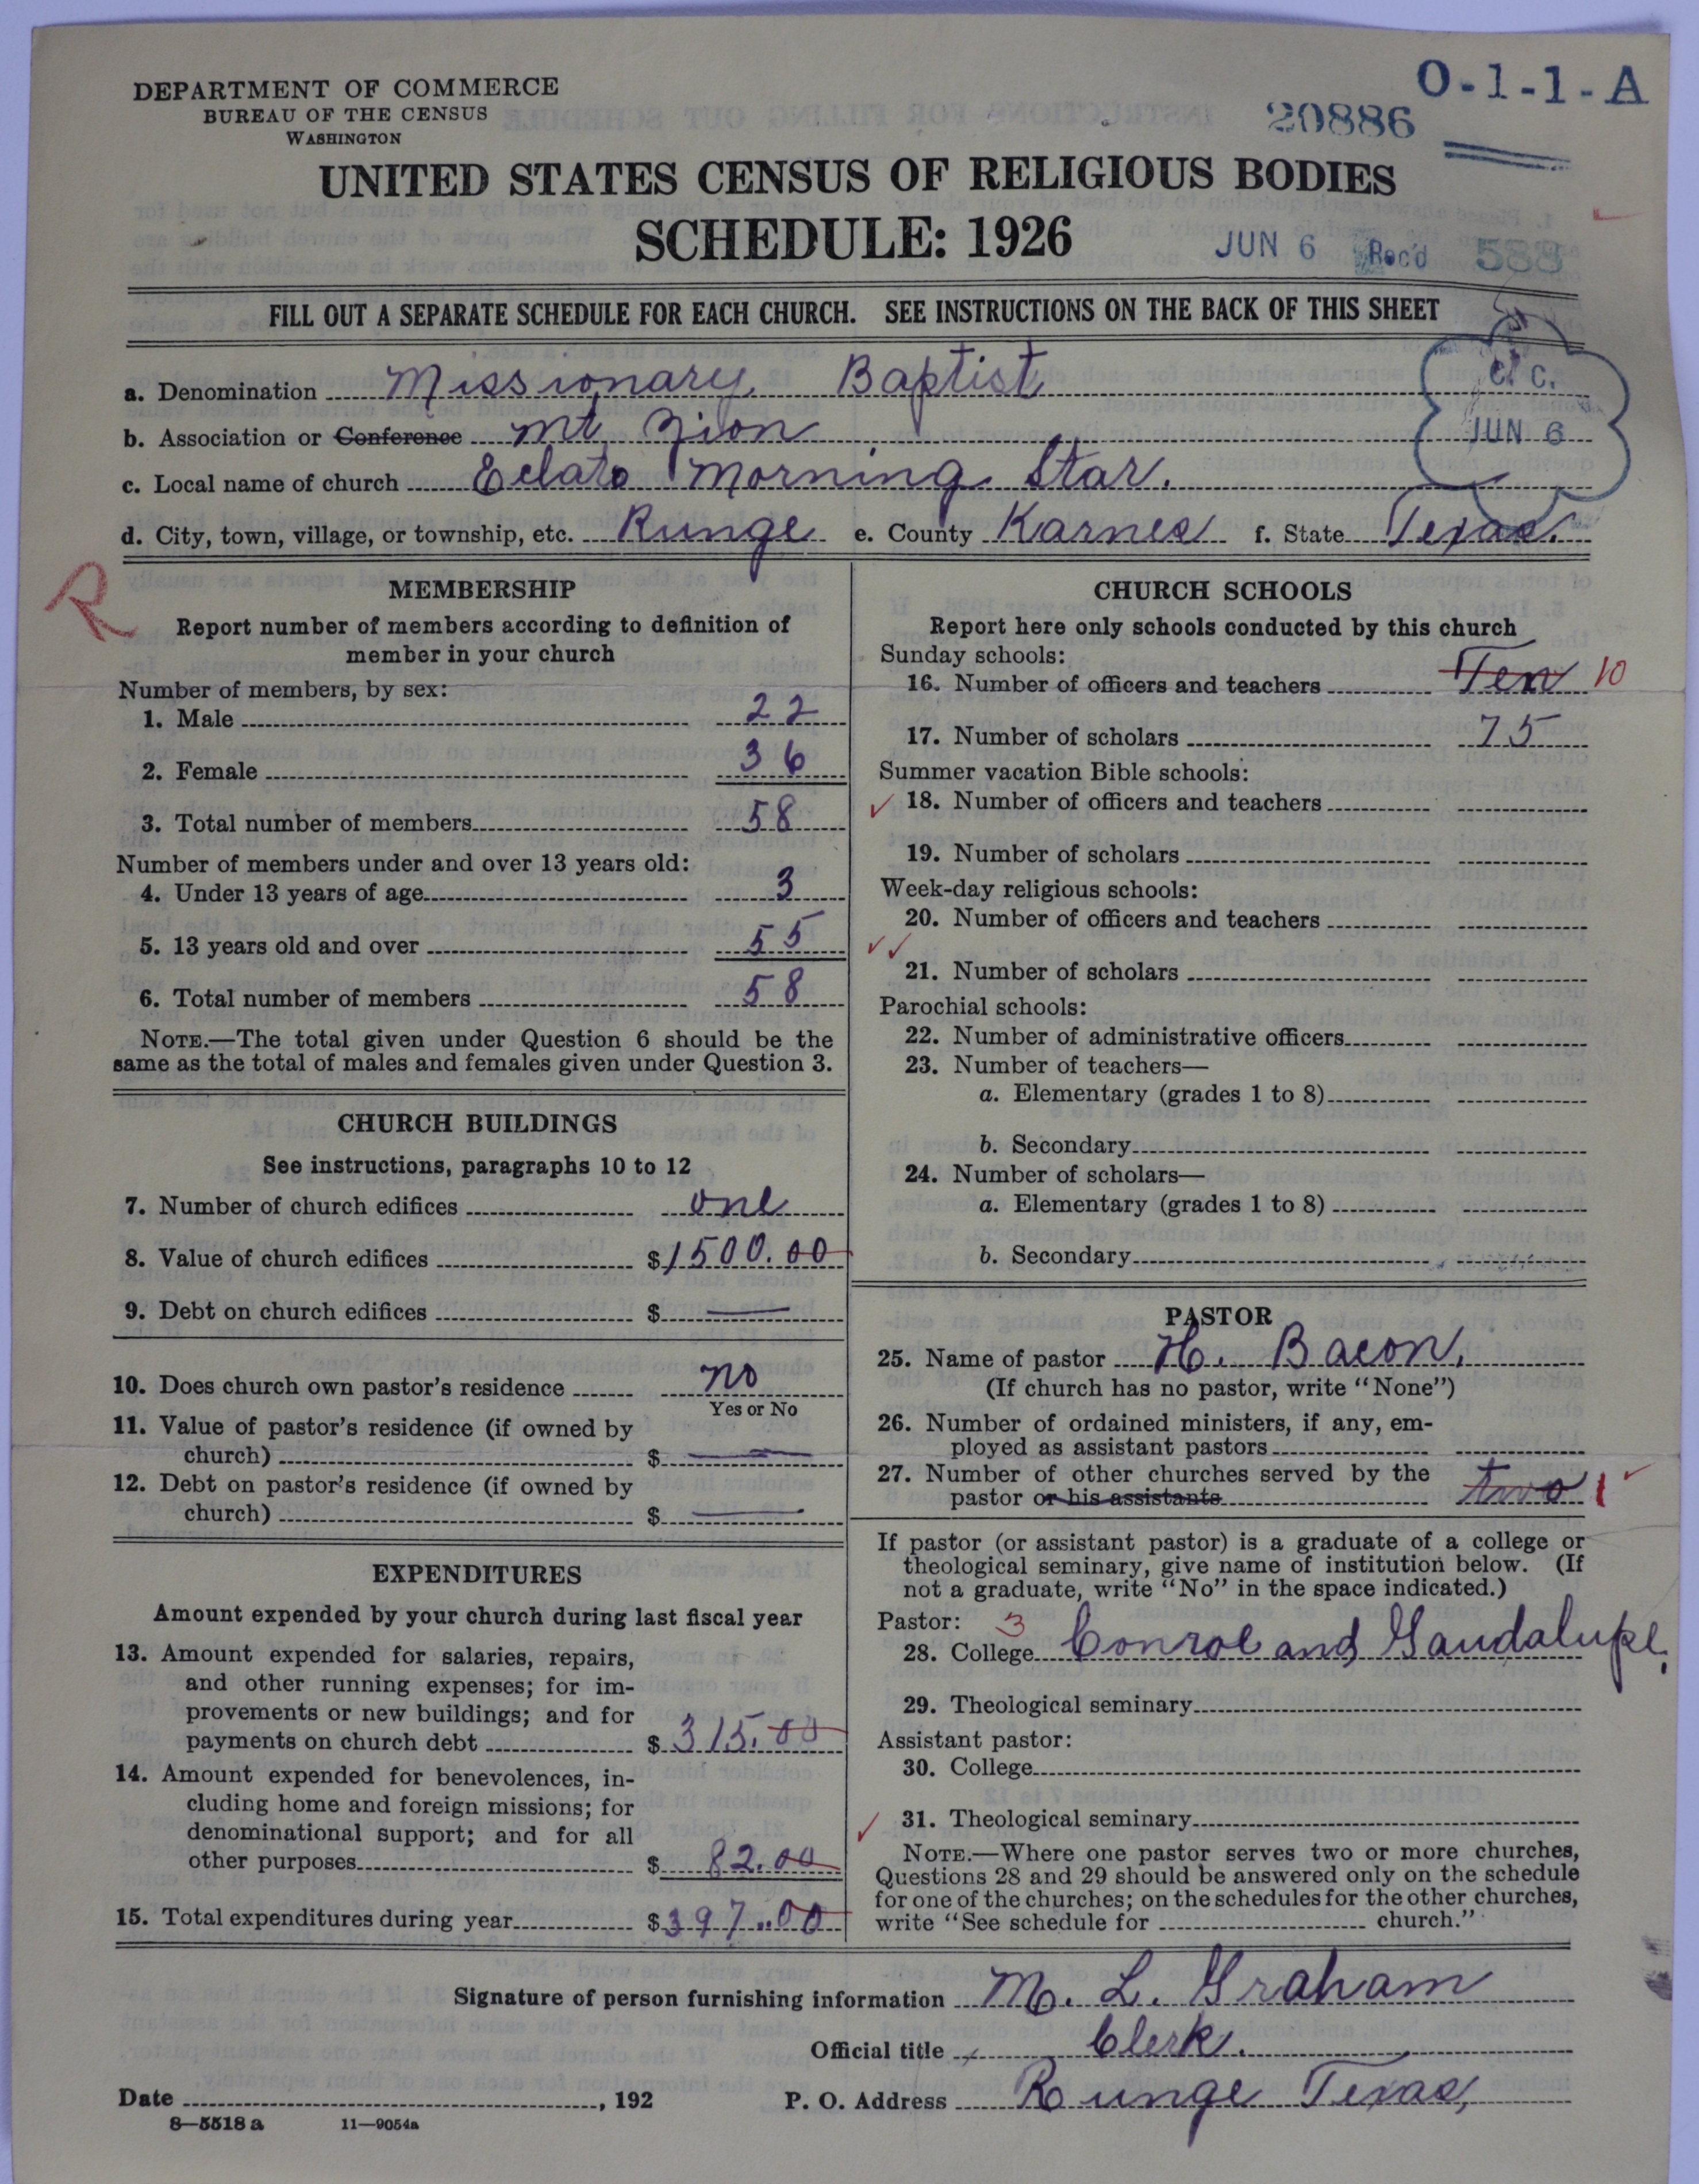 DEPARTMENT OF COMMERCE
BUREAU OF THE CENSUS
WASHINGTON
O-1-1-A
20886
UNITED STATES CENSUS OF RELIGIOUS BODIES
SCHEDULE: 1926
JUN 6 Rec'd 588
FILL OUT A SEPARATE SCHEDULE FOR EACH CHURCH. SEE INSTRUCTIONS ON THE BACK OF THIS SHEET
C. C.
JUN 6
a. Denomination Missionary Baptist
b. Association or Conference Mt. Zion
c. Local name of church Eclato Morning Star.
d. City, town, village, or township, etc. Runge e. County Karnes f. State Texas.
R
MEMBERSHIP
Report number of members according to definition of
member in your church
Number of members, by sex:
1. Male 22
2. Female 36
3. Total number of members 58
Number of members under and over 13 years old:
4. Under 13 years of age 3
5. 13 years old and over 55
6. Total number of members 58
NOTE.—The total given under Question 6 should be the
same as the total of males and females given under Question 3.
CHURCH BUILDINGS
See instructions, paragraphs 10 to 12
7. Number of church edifices one
8. Value of church edifices $1500.00
9. Debt on church edifices $ —
10. Does church own pastor's residence no
Yes or No
11. Value of pastor's residence (if owned by
church) $ —
12. Debt on pastor's residence (if owned by
church) $ —
EXPENDITURES
Amount expended by your church during last fiscal year
13. Amount expended for salaries, repairs,
and other running expenses; for im-
provements or new buildings; and for
payments on church debt $ 315.00
14. Amount expended for benevolences, in-
cluding home and foreign missions; for
denominational support; and for all
other purposes $ 82.00
15. Total expenditures during year $397.00
CHURCH SCHOOLS
Report here only schools conducted by this church
Sunday schools:
16. Number of officers and teachers Ten 10
17. Number of scholars 75
Summer vacation Bible schools:
18. Number of officers and teachers
19. Number of scholars
Week-day religious schools:
20. Number of officers and teachers
21. Number of scholars
Parochial schools:
22. Number of administrative officers
23. Number of teachers—
a. Elementary (grades 1 to 8)
b. Secondary
24. Number of scholars—
a. Elementary (grades 1 to 8)
b. Secondary
PASTOR
25. Name of pastor H. Bacon.
(If church has no pastor, write "None")
26. Number of ordained ministers, if any, em-
ployed as assistant pastors
27. Number of other churches served by the
pastor or his assistants two 1
If pastor (or assistant pastor) is a graduate of a college or
theological seminary, give name of institution below. (If
not a graduate, write "No" in the space indicated.)
Pastor: 3
28. College Conroe and Gaudalupe.
29. Theological seminary
Assistant pastor:
30. College
31. Theological seminary
NOTE.—Where one pastor serves two or more churches,
Questions 28 and 29 should be answered only on the schedule
for one of the churches; on the schedules for the other churches,
write "See schedule for church."
Signature of person furnishing information M. L. Graham
Official title Clerk.
Date , 192 P. O. Address Runge Texas,
8—5518 a 11—9054a